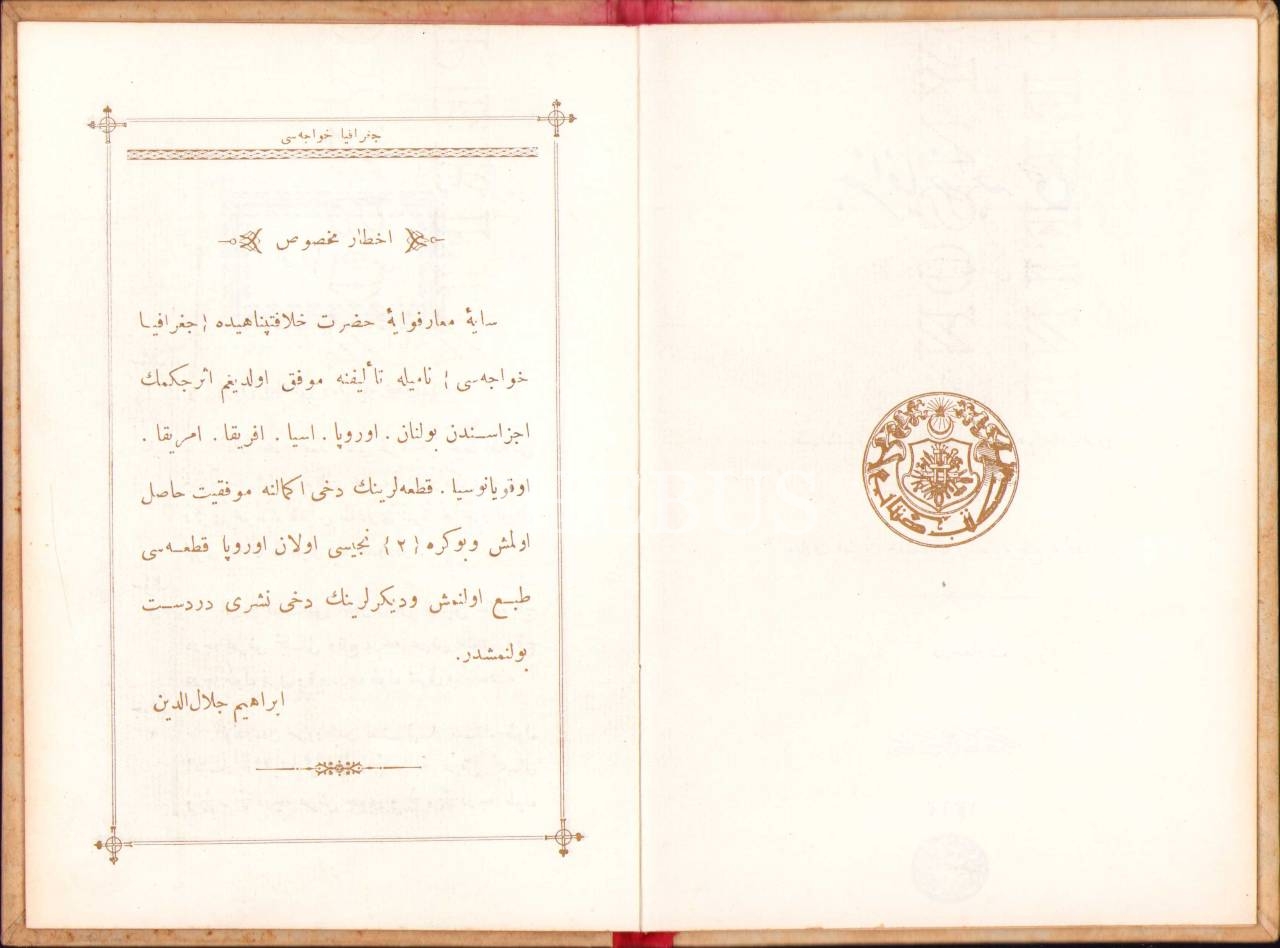 جغرافيا خواجه‌سی
اخطار مخصوص
سايۀ معارفوايۀ حضرت خلافتپناهيده {جغرافيا
خواجه‌سی} ناميله تأليفنه موفق اولديغم اثرجكمك
اجزاسندن بولنان . اوروپا . اسيا . افريقا . امريقا .
اوقويانوسيا . قطعه‌لرينك دخی اكمالنه موفقيت حاصل
اولمش وبوكره {٢} نجيسی اولان اوروپا قطعه‌سی
طبع اولنمش وديكرلرينك دخی نشری دردست
بولنمشدر.
ابراهيم جلال‌الدين